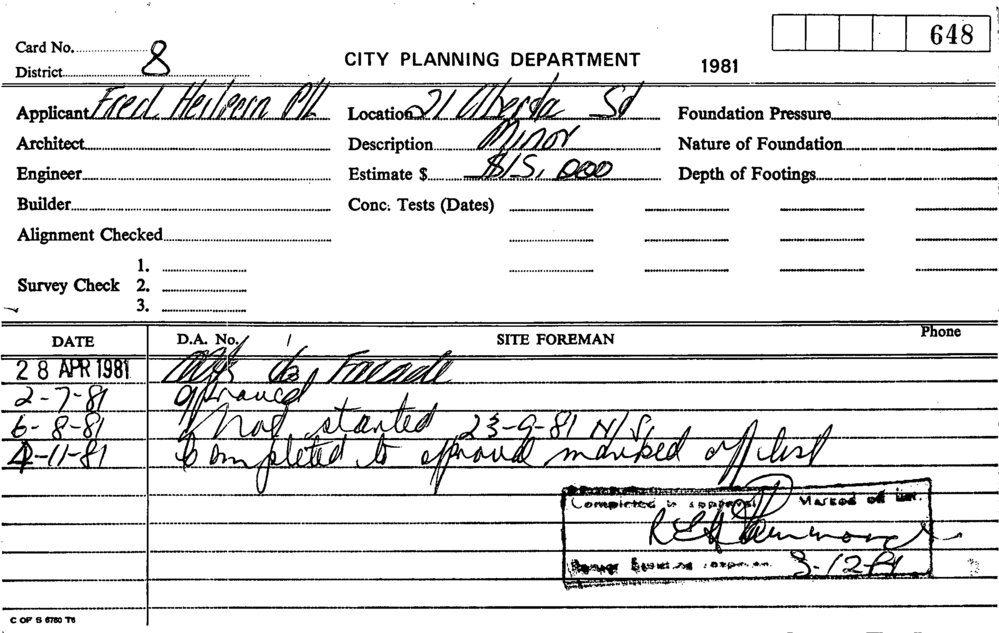 648
Card No. 8
District
CITY PLANNING DEPARTMENT 1981
Applicant Fred Heilpern P/L Location 21 Alberta St Foundation Pressure
Architect Description Minor Nature of Foundation
Engineer Estimate $ $15,000 Depth of Footings
Builder Conc. Tests (Dates)
Alignment Checked
1.
Survey Check 2.
3.
DATE D.A. No. SITE FOREMAN Phone
28 APR 1981 to Facade
2-7-81 approved
6-8-81 Not started 23-9-81 N/S.
4-11-81 Completed to approval marked off list
Completed to approval Marked off list
3-12-81
C OF S 6760 T6